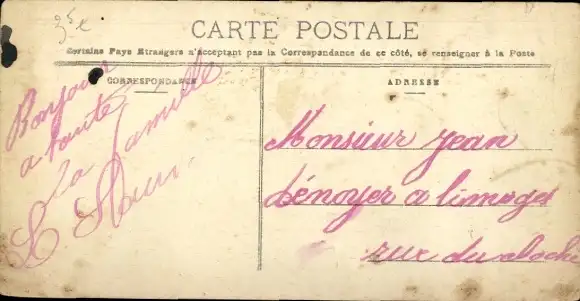 35 c
CARTE POSTALE
Certains Pays Etrangers n'acceptant pas la Correspondance de ce côté, se renseigner à la Poste
CORRESPONDANCE
Bonjour
a toute
la famille
ADRESSE
Monsieur Jean
Lénoyer a limoges
rue du cloche